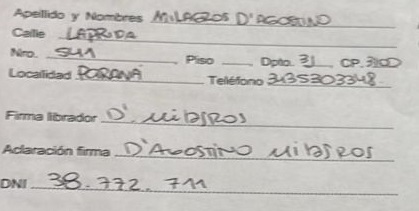 Apellido y Nombres MILAGROS D'AGOSTINO
Calle LAPRIDA
Nro. 541 Piso Dpto. 31 CP. 3100
Localidad PARANÁ Teléfono 3435303348
Firma librador D'
Aclaración firma D'AGOSTINO MILAGROS
DNI 38.772.711